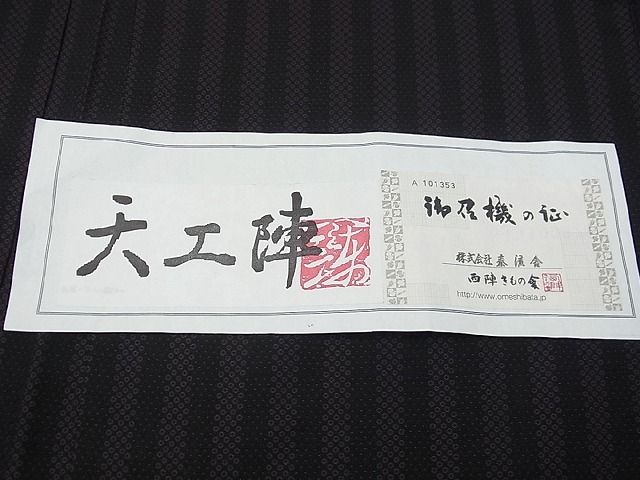 天工陣
A 101353
御召機の証
株式会社秦流舎
西陣きもの会
http://www.omeshibata.jp